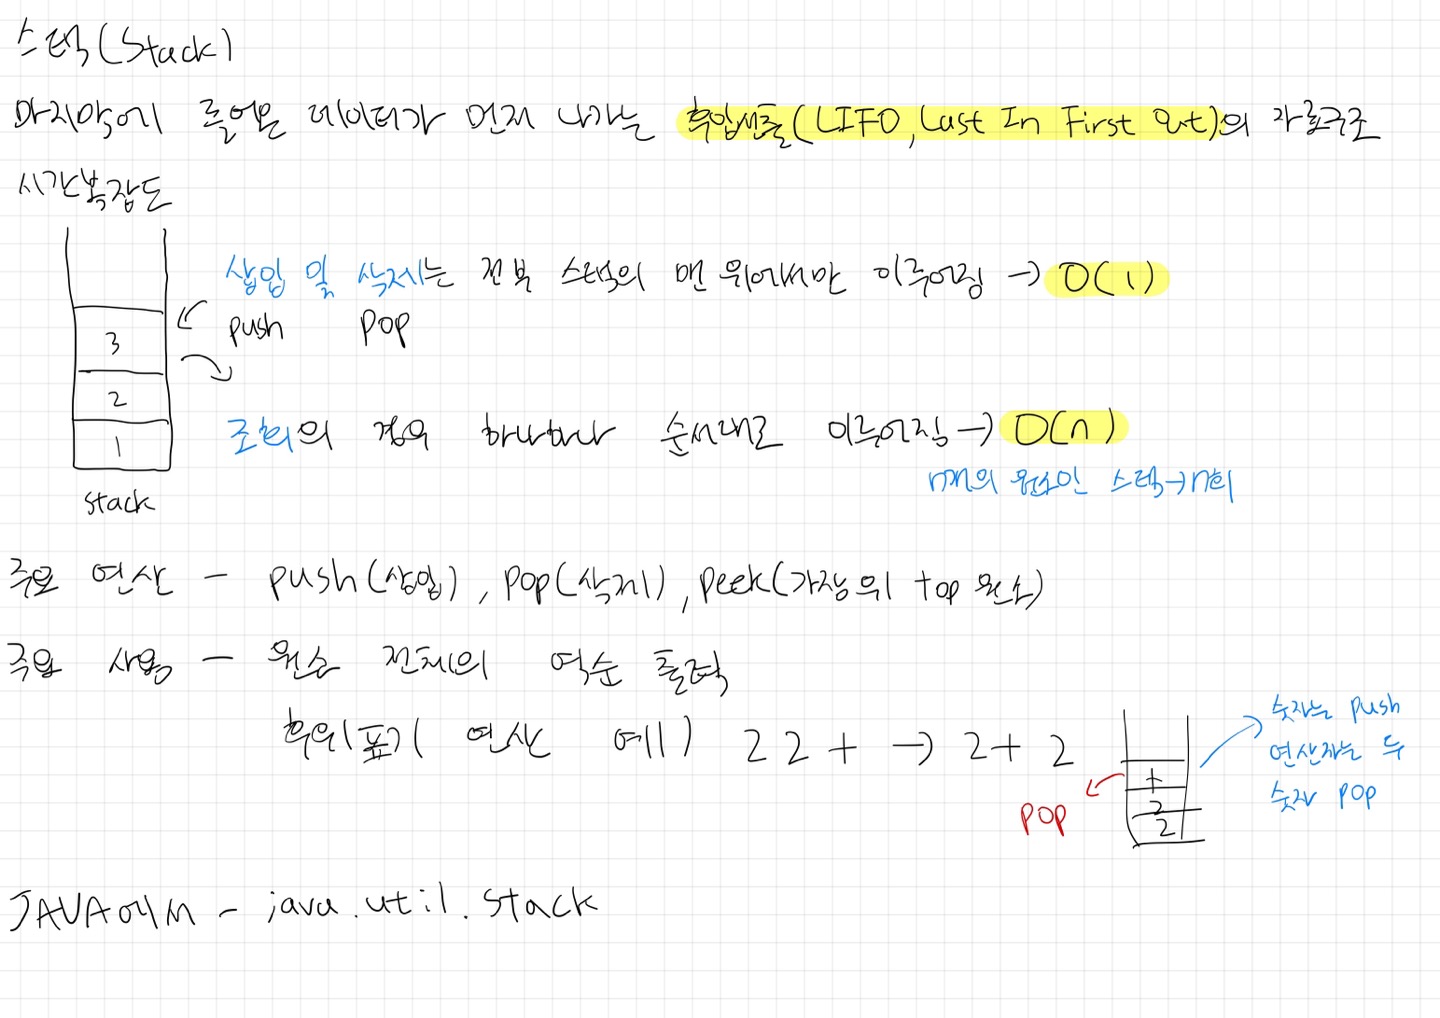 스택(Stack)
마지막에 들어온 데이터가 먼저 나가는 후입선출(LIFO, Last In First Out)의 자료구조
시간복잡도
삽입 및 삭제는 전부 스택의 맨 위에서만 이루어짐 → O(1)
push pop
3
2
1
stack
조회의 경우 하나하나 순서대로 이루어짐 → O(n)
n개의 원소인 스택→n회
주요 연산 - push(삽입), pop(삭제), peek(가장 위 top 원소)
주요 사용 - 원소 전체의 역순 출력
후위표기 연산 예) 2 2 + → 2 + 2
+
2
2
pop
숫자는 push
연산자는 두
숫자 pop
JAVA에서 - java.util.stack